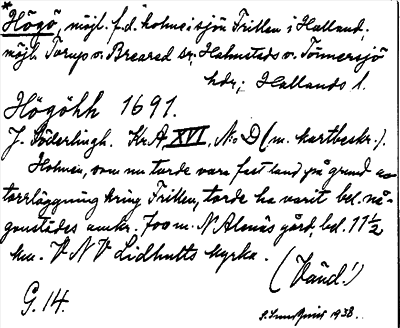 *Högö, möjl. f.d. holme i sjön Fritten i Halland,
möjl. Torup o. Breared sr; Halmstads o. Tönnersjö
hdr; Hallands l.
Högöhh 1691.
J. Söderlingh. Kr. A XVI, No D (m. kartbeskr.).
Holmen, som nu torde vara fast land på grund av
torrläggning kring Fritten, torde ha varit bel. nå-
gonstädes omkr. 700 m. N Alenäs gård, bel. 11 1/2
km. V N V Lidhults kyrka.
(Vänd!)
G. 14.
1938.